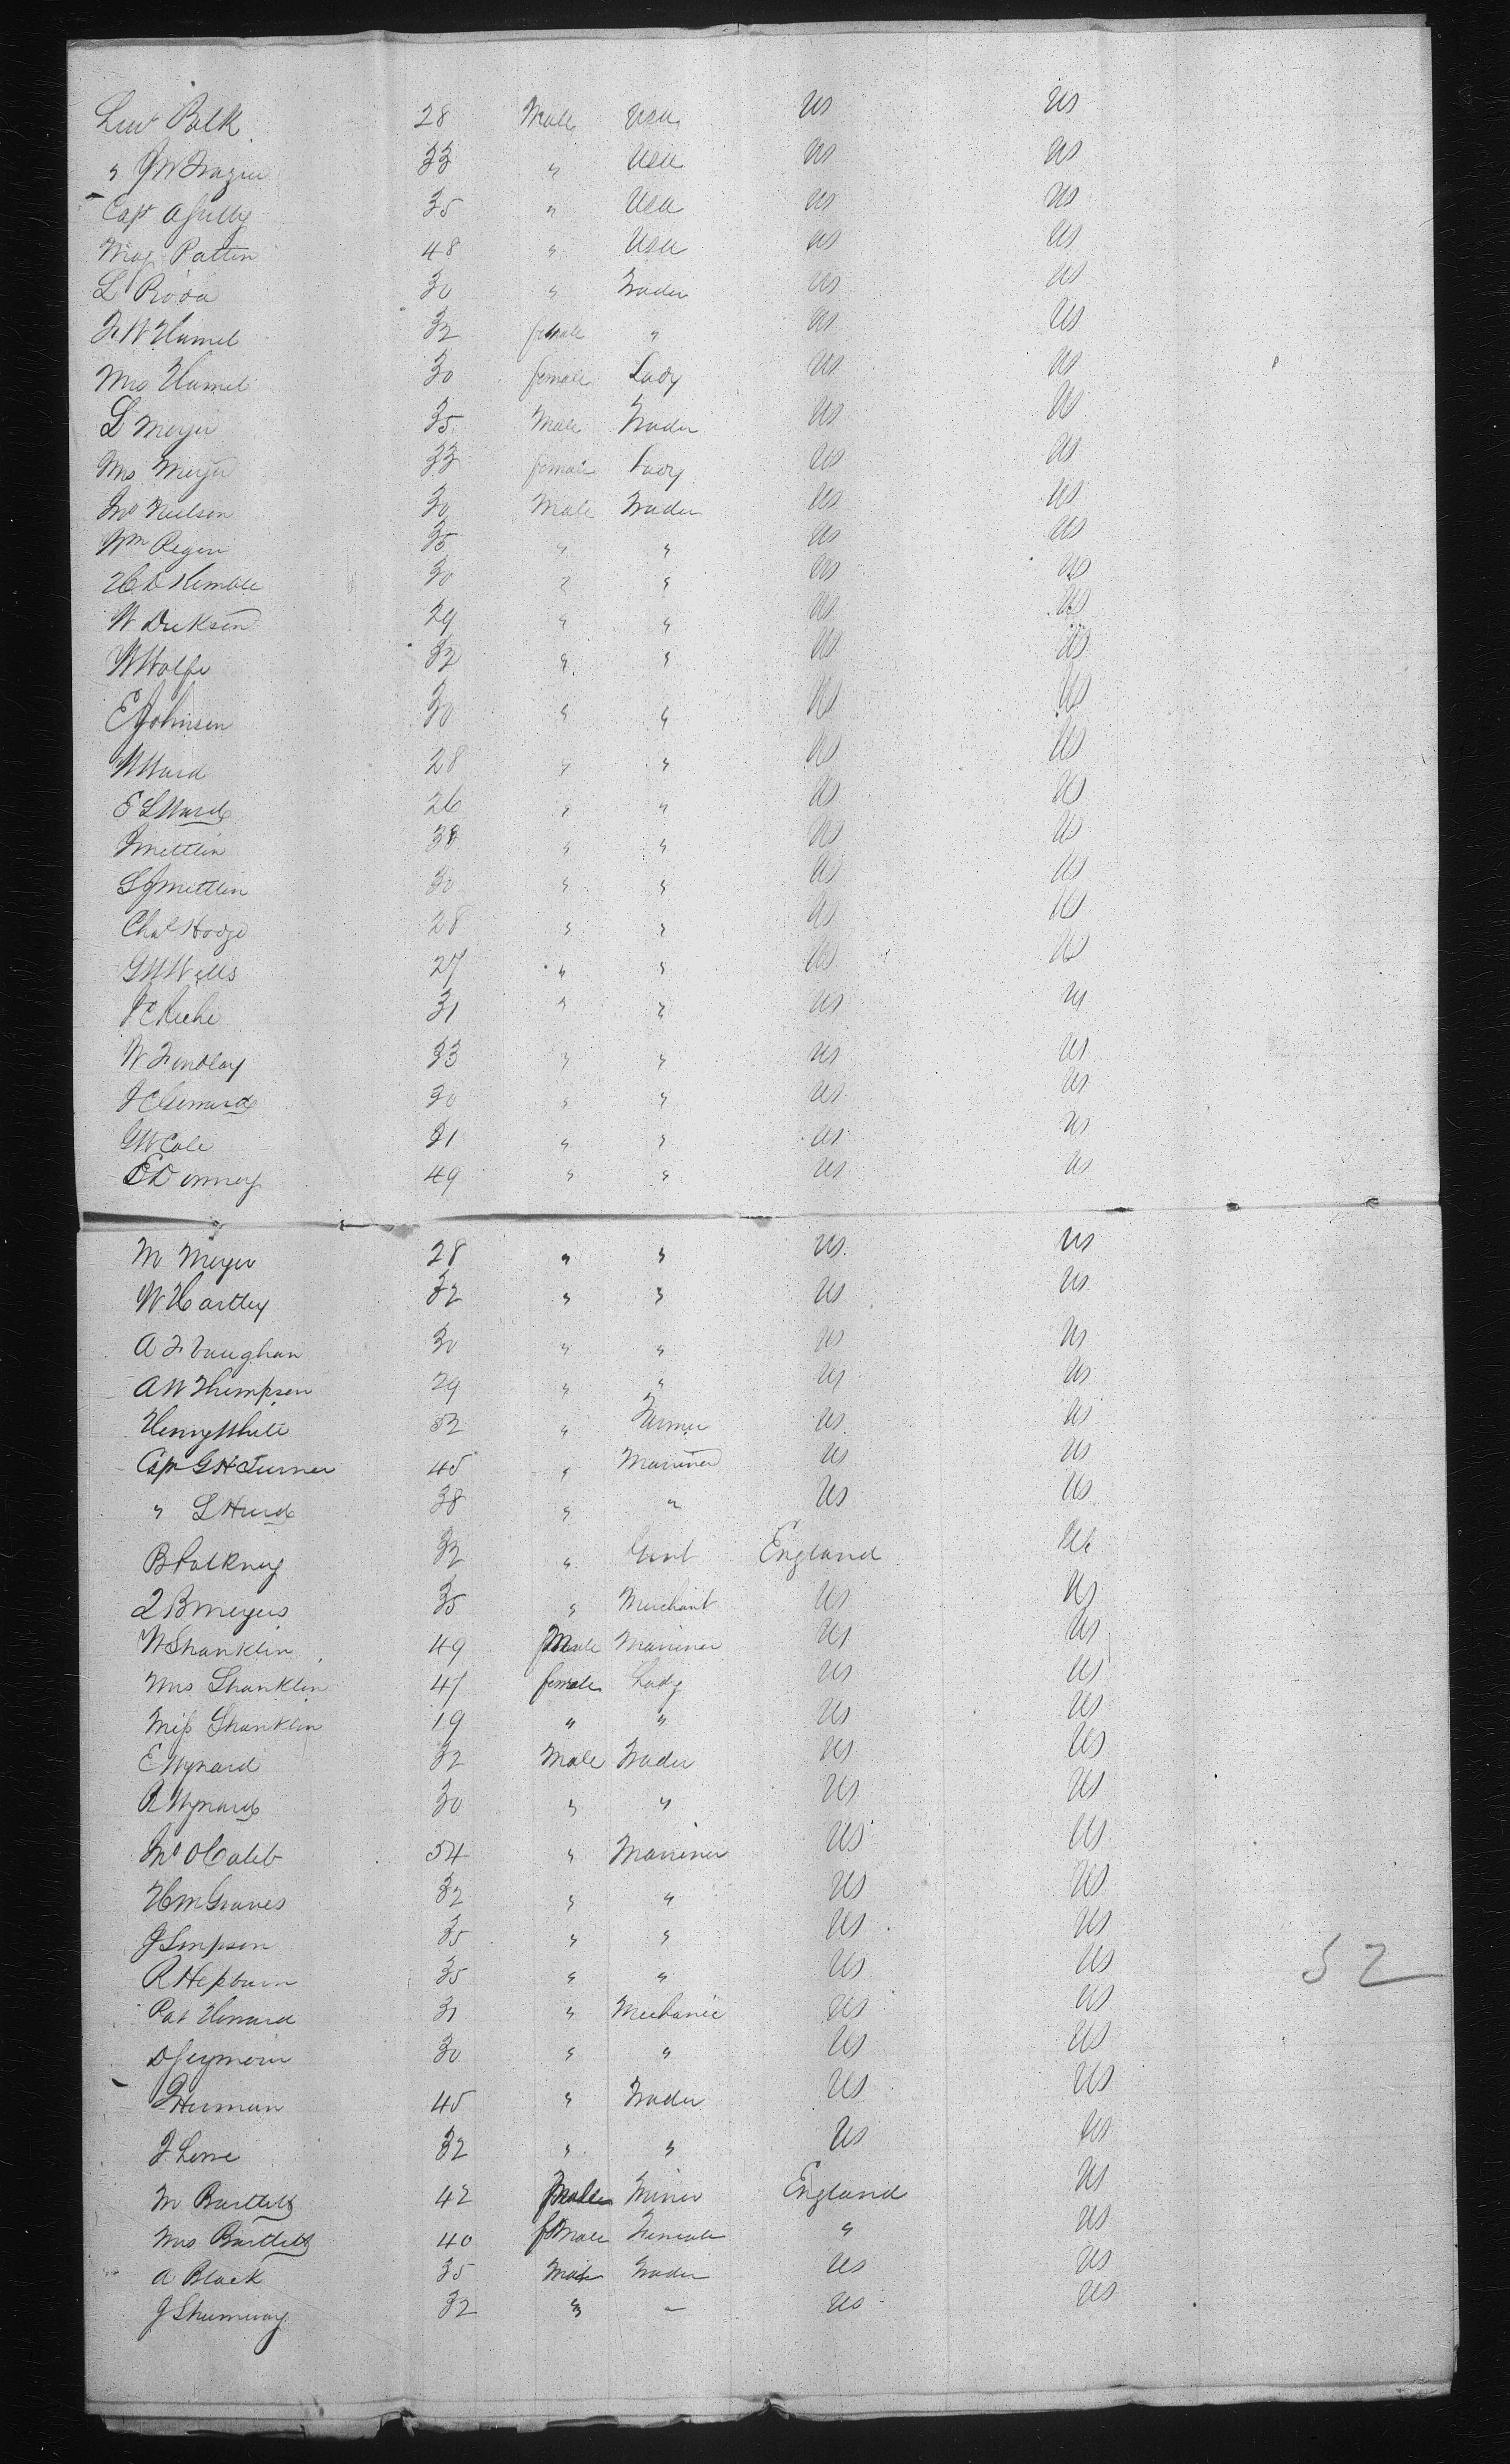 Liut Polk 28 Male USA US US
" J W Frazier 33 " USA US US
Capt A Gully 35 " USA US US
Maj Patten 48 " USA US US
L 30 " Trader US US
F W Hamel 32 female " US US
Mrs Hamel 30 female Lady US US
L Meyer 35 Male Trader US US
Mrs Meyer 33 female Lady US US
Jno Neilson 30 Male Trader US US
Wm Regen 35 " " US US
H D Kemble 30 " " US US
W Dickson 29 " " US US
W Wolfe 32 " " US US
E Johnson 30 " " US US
W Ward 28 " " US US
E L Ward 26 " " US US
J Mettlin 38 " " US US
S J Mettlin 30 " " US US
Chas Hodge 28 " " US US
G W Wells 27 " " US US
J C 31 " " US US
W Findlay 33 " " US US
J C 30 " " US US
G W Cole 31 " " US US
E Donney 49 " " US US
M Meyer 28 " " US US
W Hartley 32 " " US US
A F Vaughan 30 " " US US
A W Thompson 29 " " US US
Henry White 32 " Farmer US US
Capt G H Turner 45 " Mariner US US
" L Hurd 38 " " US US
B Falkney 32 " Gent England US
L B Meyers 35 " Merchant US US
W Shanklin 49 Male Mariner US US
Mrs Shanklin 41 female Lady US US
Miss Shanklin 19 " " US US
E Wynard 32 Male Trader US US
R Wynard 30 " " US US
Jno O Caleb 54 " Mariner US US
H M Graves 32 " " US US
J Simpson 35 " " US US
R Hepburn 35 " " US US
Pat Howard 31 " Mechanic US US
D Seymour 30 " " US US
J Herman 45 " Trader US US
J Lowe 32 " " US US
52
M Bartlett 42 Male Miner England US
Mrs Bartlett 40 female Female " US
A Black 35 Male Trader US US
J Shumway 32 " " US US